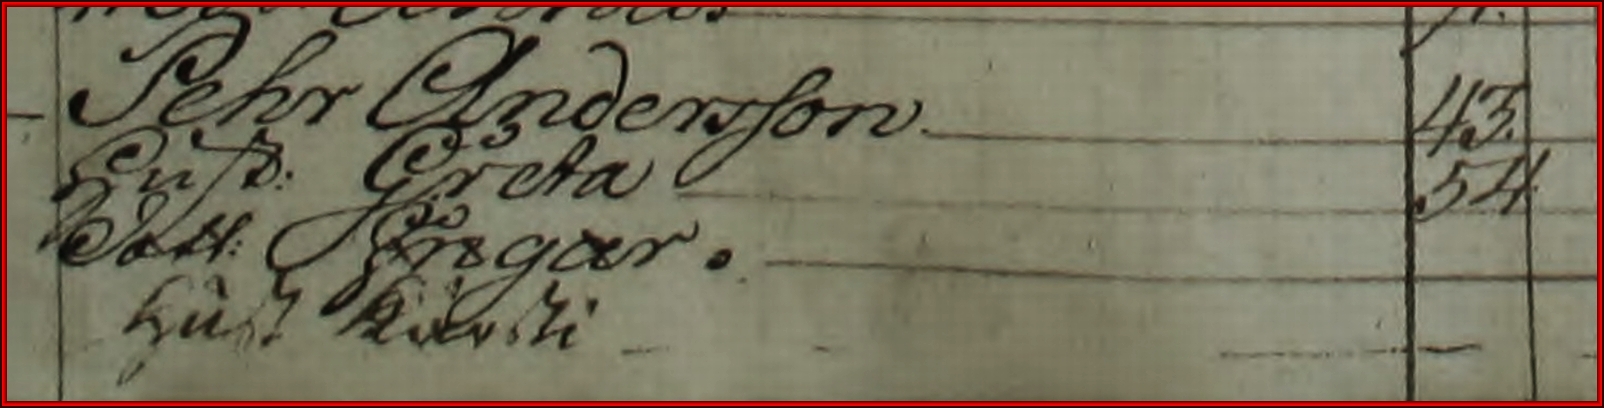 Pehr Andersson. 43.
Hust: Greta 54
Dott: Ingar.
Hust Kiersti